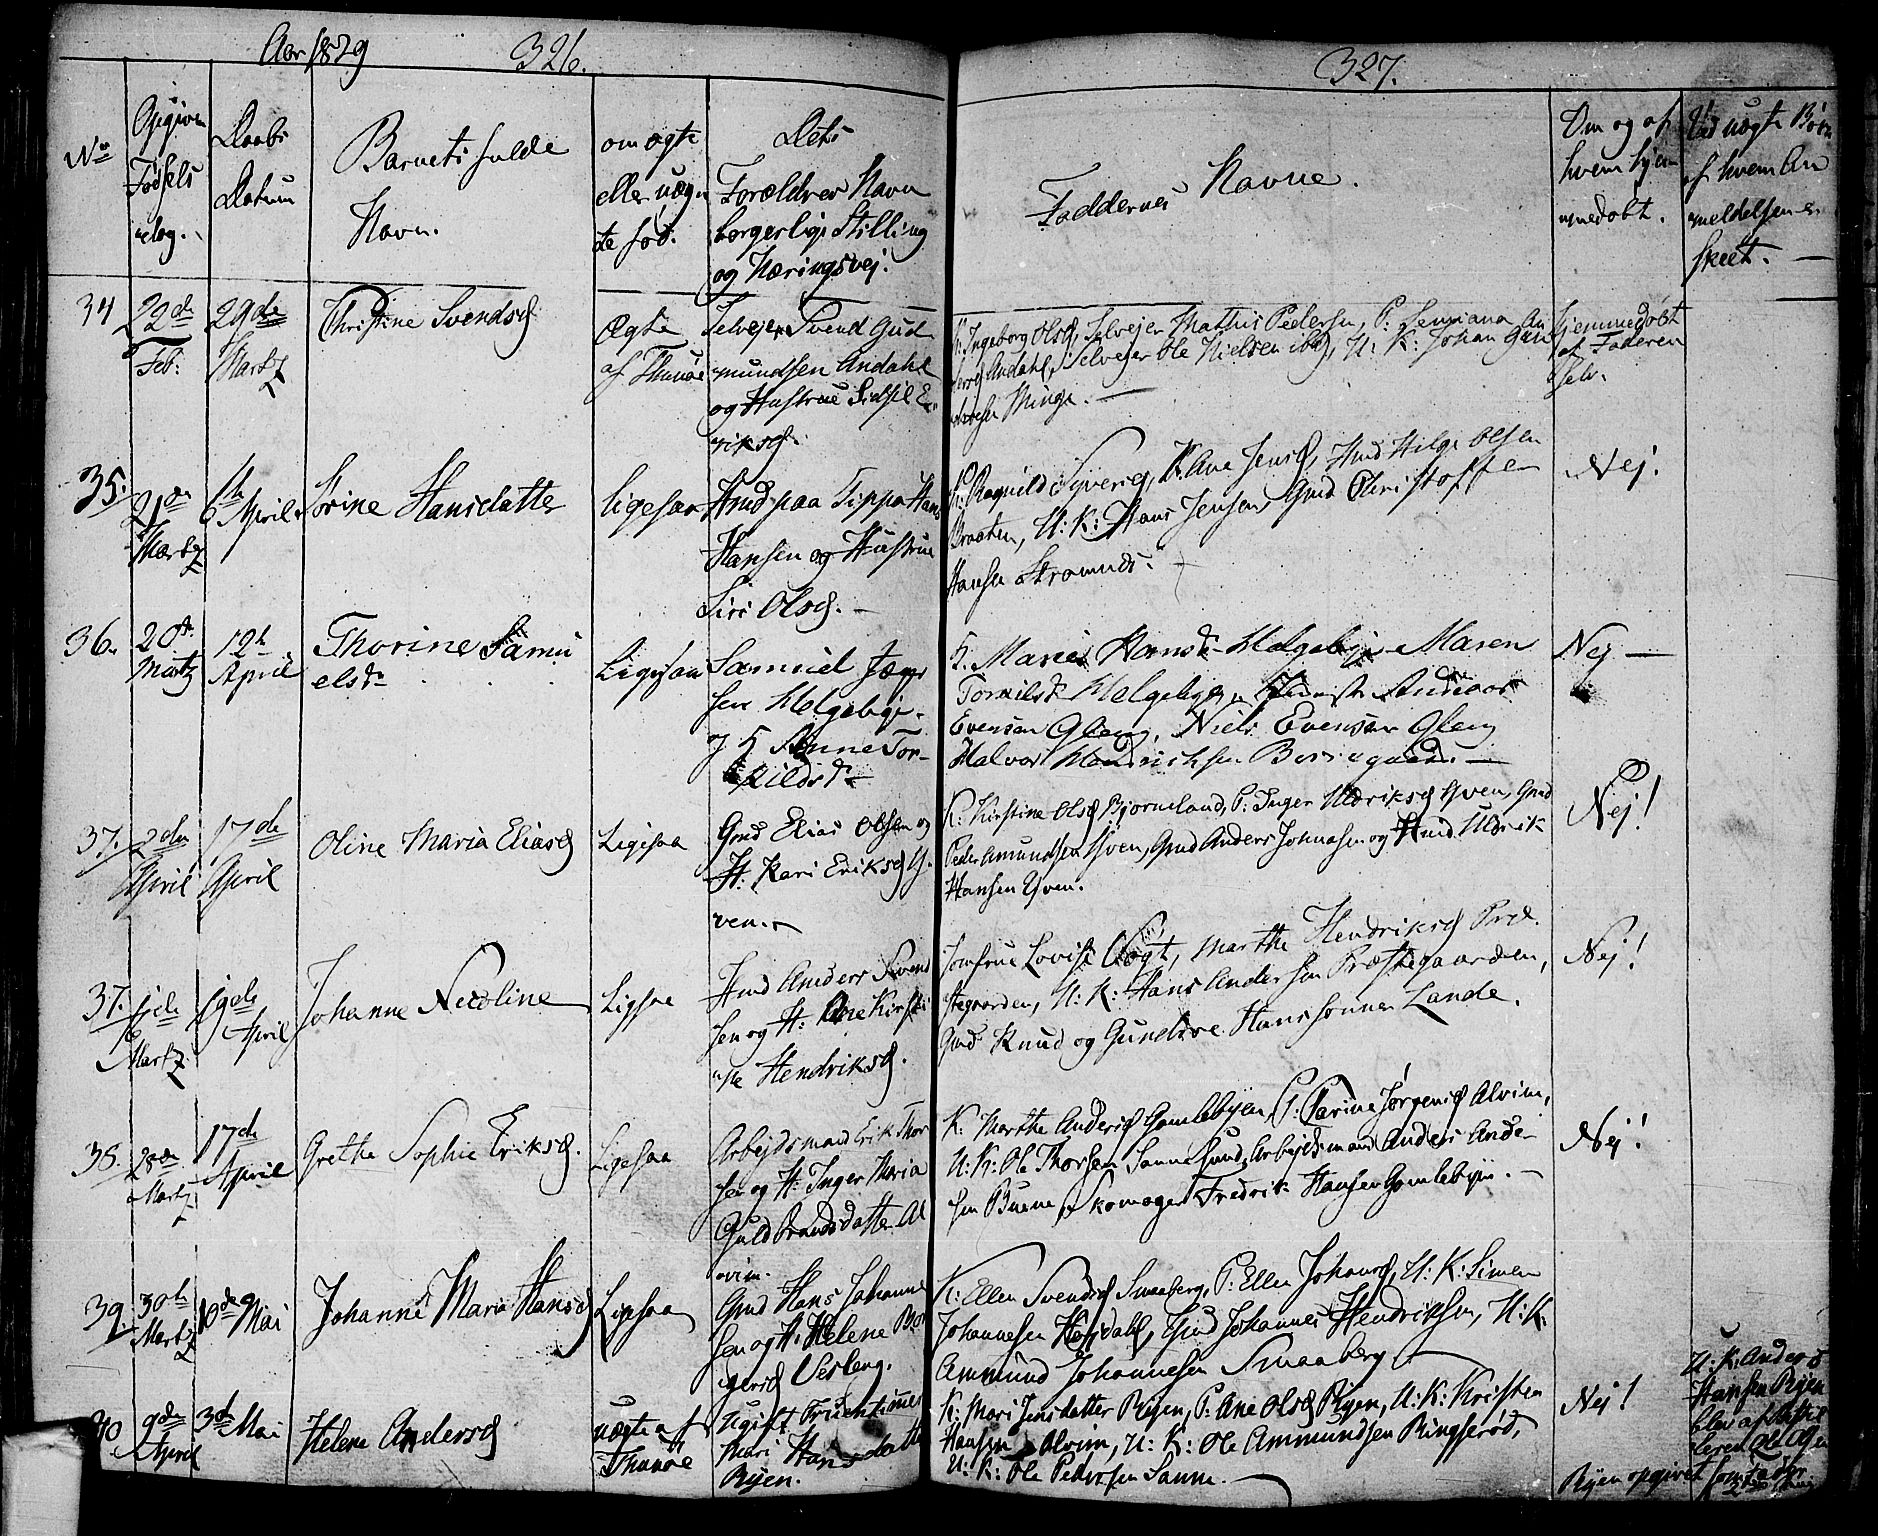 Aar 1829
326.
327.
No
Opgiven
Fødsels
dag.
Daabs
Datum
Barnets fulde
Navn.
om ægte
eller uæg
te fød.
Dets
Forældres Navn
borgerlige Stilling
og Næringsvej.
Faddernes Navne.
Om og af
hvem hjem
medøbt.
Ved uægte Børn
af hvem An
meldelsen er
skeet. —
34
22de
Feb:
29de
Martz
Christine Svendsd
Ægte
af Thunøe
Selvejer Svend Gud
mundsen Andahl
og Hustrue Sidsil E
riksd.
K: Ingeborg Olsd, Selvejer Mathis Pedersen, P:
Andahl, Selvejer Ole Nielsen ibd, U: K: Johan
Minge. —
hjemmedøbt
af Faderen
selv.
35.
21de
Martz
April
Hansdatter
Ligesaa
Hmd paa Tippa Hans
Hansen og Hustrue
Siri Olsd. —
K: Ragnild Syversd, P: Ane Jensd, Hmd Helge Olsen
Braaten, U: K: Hans Jensen, Gmd Christoffer
Hansen
Nej.
36.
20de
Martz
12te
April
Thorine Samu
elsd.
Ligesaa
Samuel
sen Helgebye.
og H Anne Tor-
kildsd.
K. Maries Hansd. Helgebye Maren
Helgebye,
Evensen Gleng, Niels Evensen Gleng
Halvor Hendrichsen Borregaard. —
Nej —
37.
2den
April
17de
April
Oline Maria Eliasd
Ligesaa
Gmd Elias Olsen og
H: Kari Eriksd Y-
ven.
K: Kirstine Olsd Bjørneland, P: Inger Uldriksd Yven, Gmd
Peder Amundsen Yven, Gmd Anders Johnsen og Hmd Uldrik
Hansen Yven.
Nej!
37.
6de
Martz
19de
April
Johanne Nicoline
Ligesaa
Hmd Anders Svend
sen og H: Ane Kirsti
ne Hendriksd.
Jomfrue Lovise Vogt, Marthe Hendriksd Præ-
stegaarden, U: K: Hans Andersen Præstegaarden,
Gmd Knud og Gundroe Hanssønner Lande.
Nej!
38.
28de
Martz
17de
April
Grethe Sophie Eriksd.
Ligesaa
Arbejdsmand Erik Thor
sen og H: Inger Maria
Guldbrandsdatter Al
vim.
K: Marthe Andersd Gamlebyen, P: Carine Jørgensd Alvim,
U: K: Ole Thorsen Sannesund, Arbejdsmand Anders Ander-
sen Buene, Skomager Fredrik Hansen Gamlebyen. —
Nej!
39
30te
Martz
10de Mai
Johanne Maria Hansd
Ligesaa
Gmd Hans Johanne
sen og H: Helene Bør
gersd Vesteng.
K: Ellen Svendsd Smaaberg, P: Ellen Johansd, U: K: Simen
Johannesen Hersdahl, Gmd Johannes Hendriksen, U: K:
Ammund Johannesen Smaaberg
40
9de
April
3de Mai
Helene Andersd
uægte af
Thunøe
Ugift Fruentimmer
Hansdatter
Ryen.
K: Mari Jensdatter Ryen, P: Ane Olsd Ryen, U: K: Kristen
Hansen Alvim, U: K: Ole Ammundsen Ringserød,
U: K: Ole Pedersen Sanne. —
Nej!
U: K: Anders
Hansen Ryen
blev af
Ole Olsen
Ryen opgivet som Fader